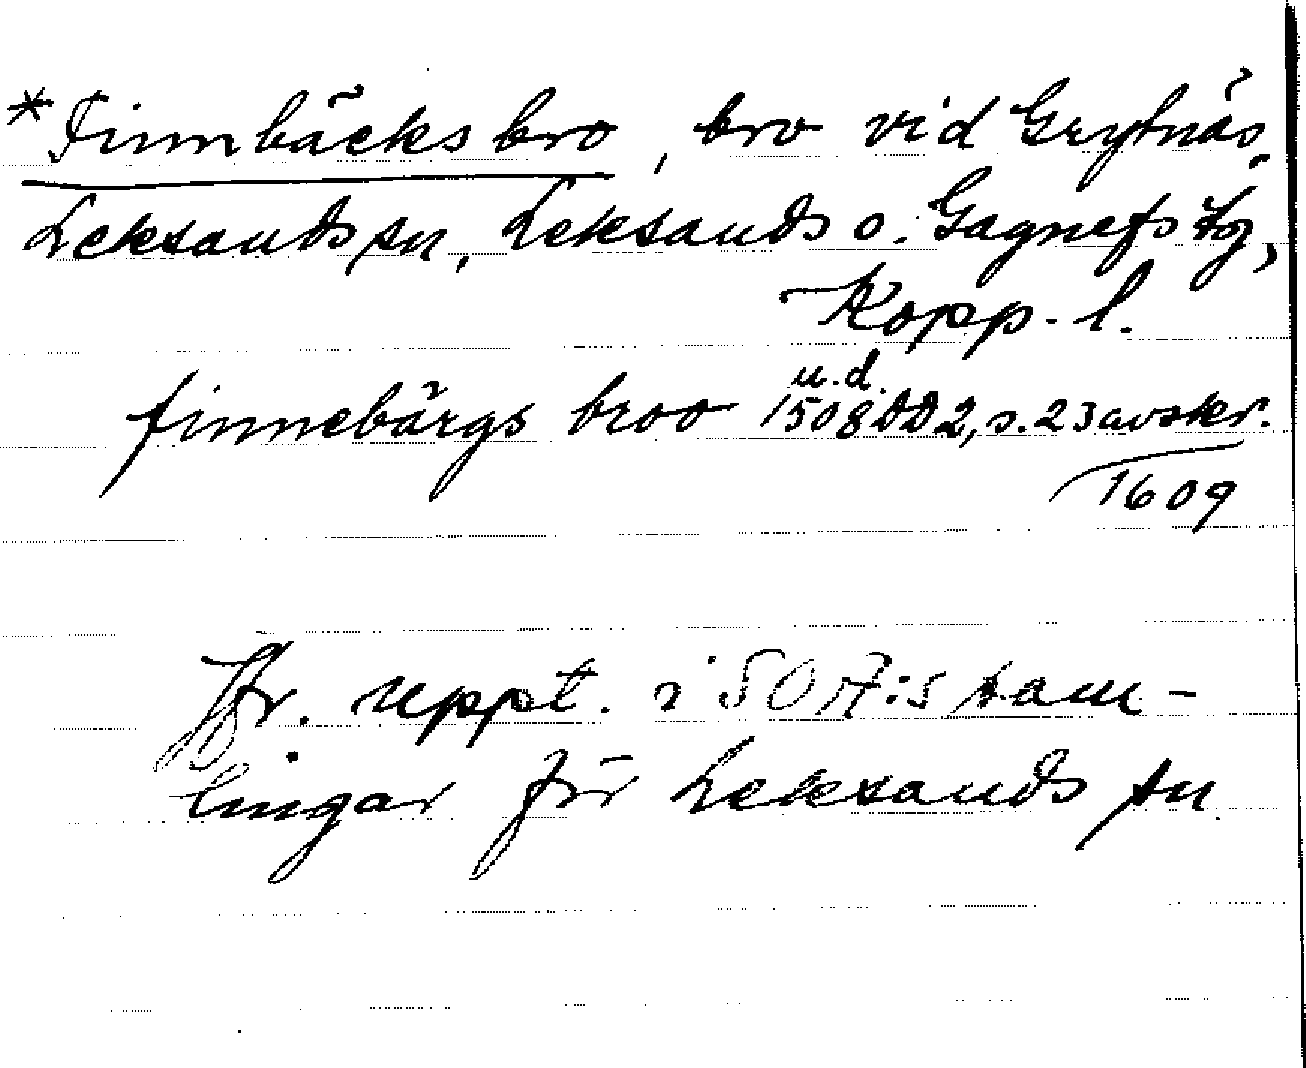 *Finnbäcksbro, bro vid Grytnäs,
Leksands sn, Leksands o. Gagnefs tg,
Kopp. l.
u.d.
finnebärgs broo 1508 DD2, s. 23 avskr.
1609
Jfr. uppt. i SOA:s sam-
lingar för Leksands sn